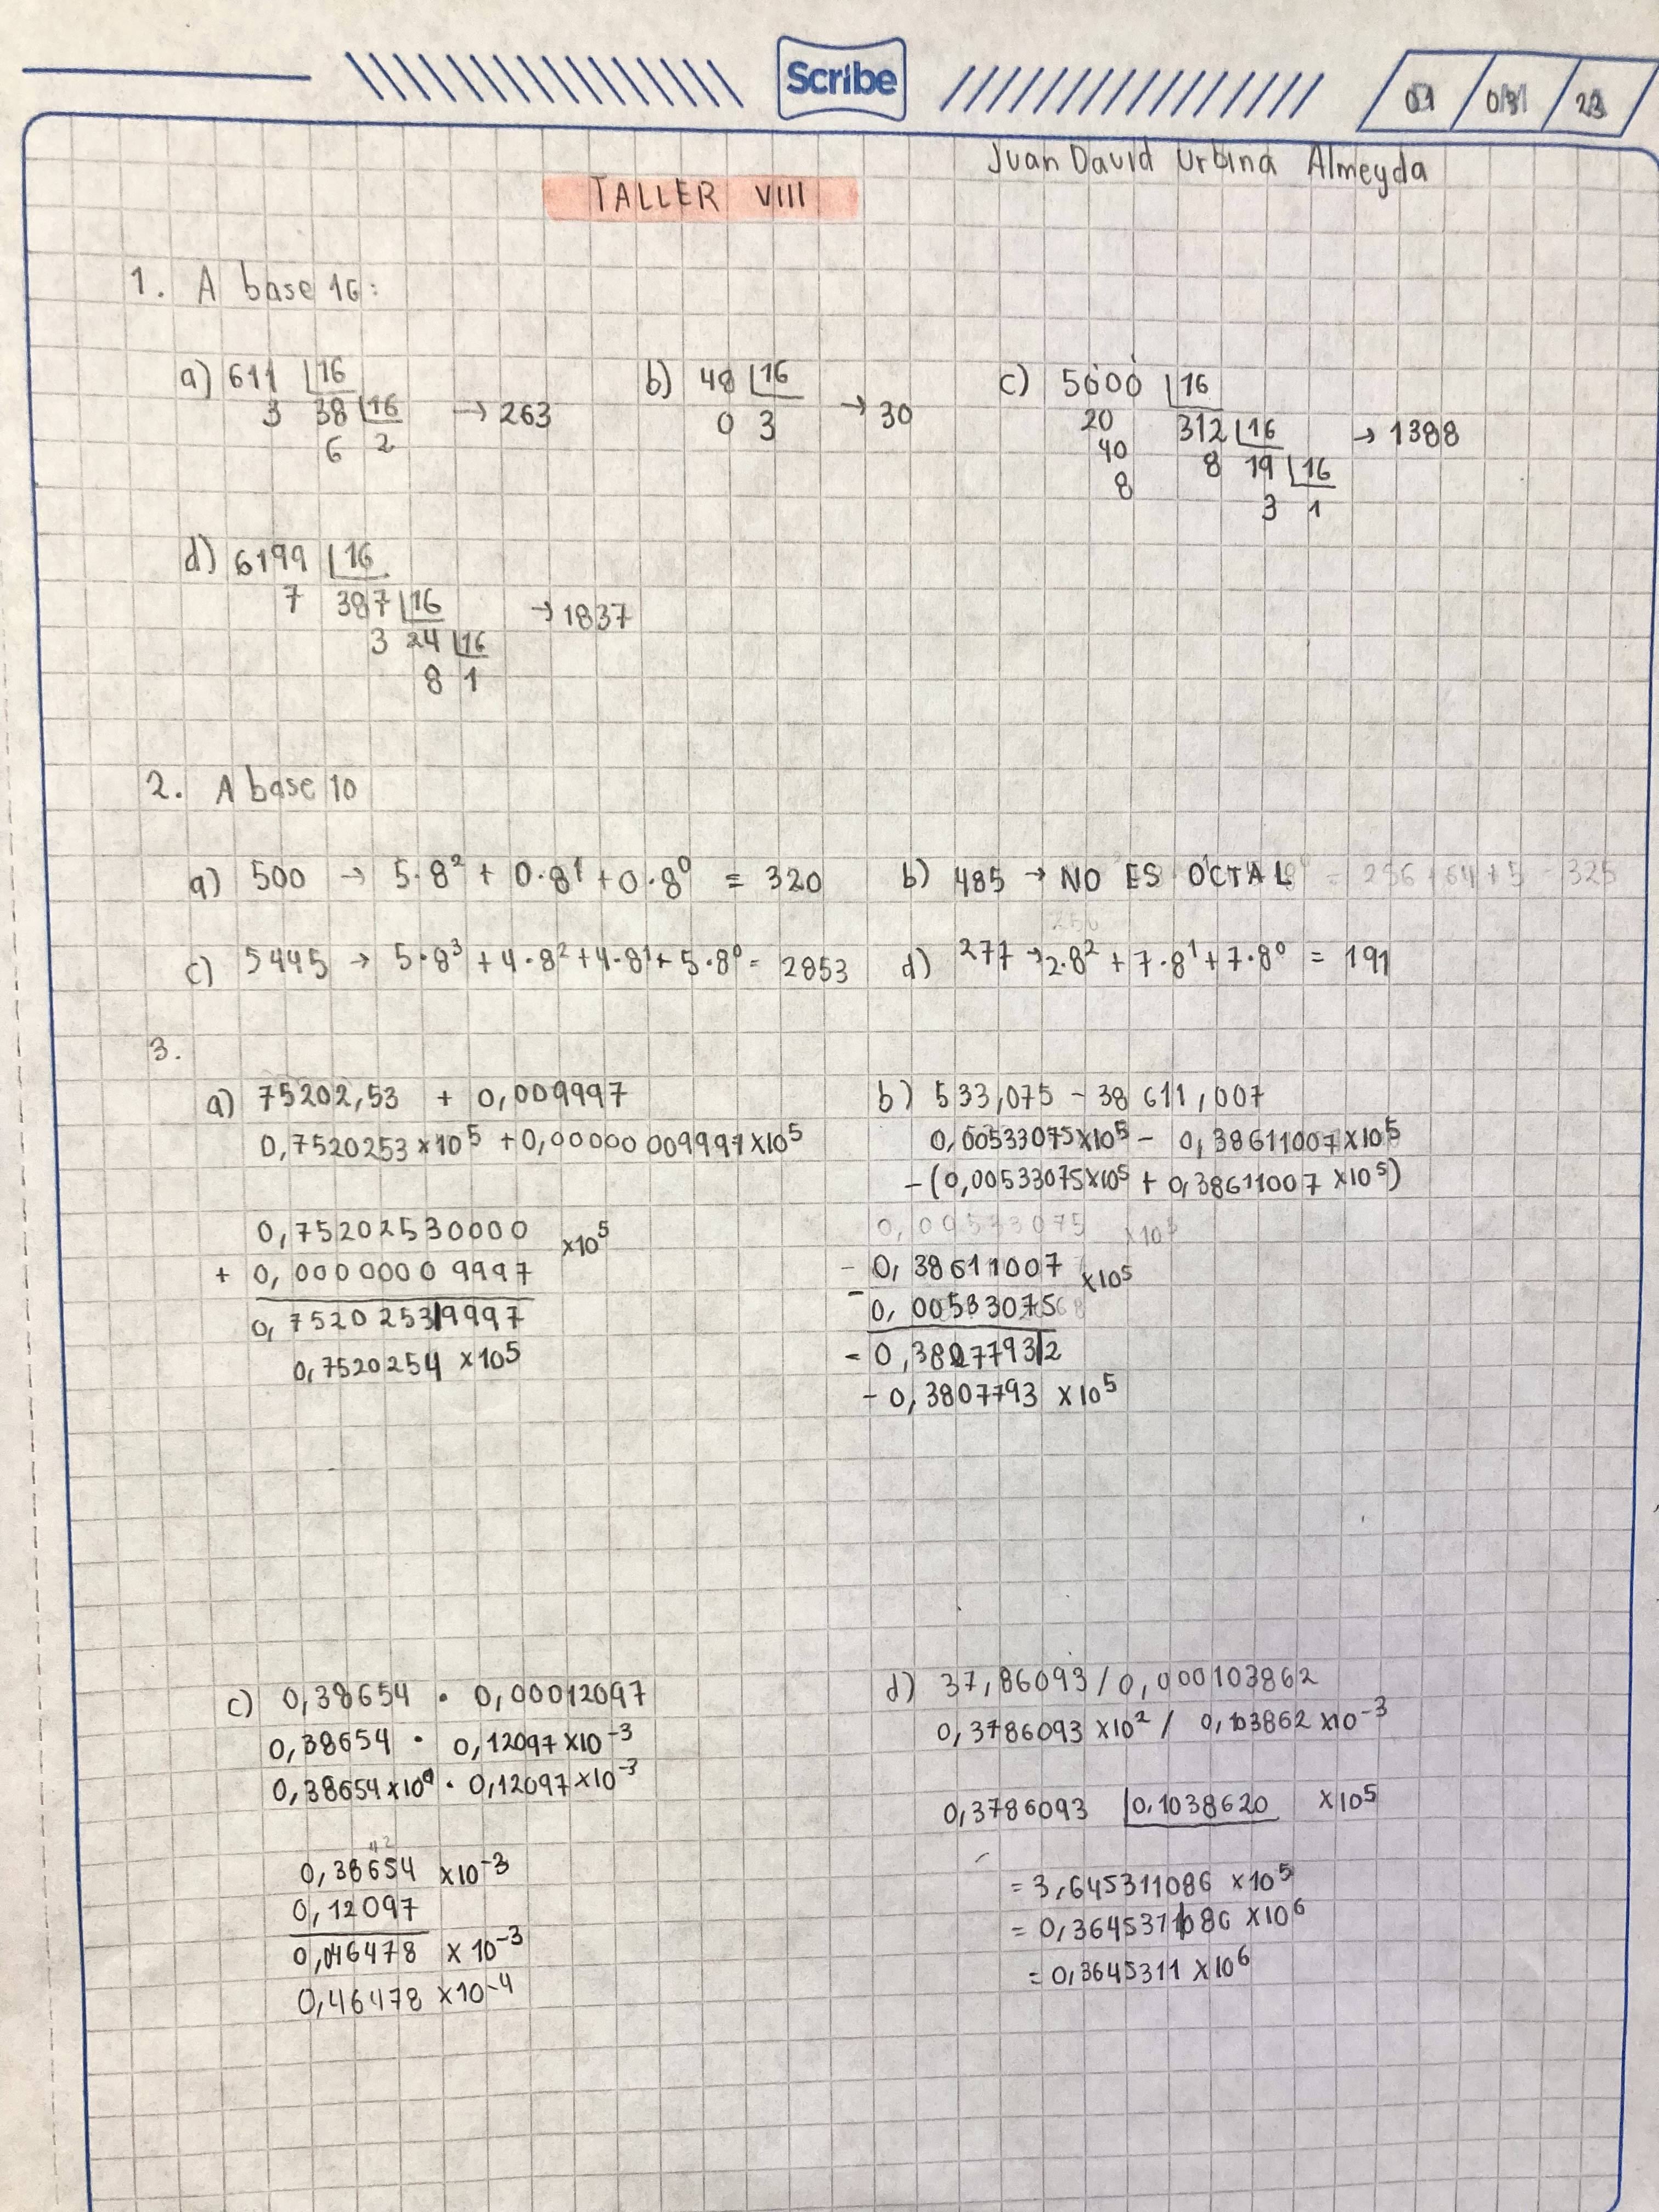 Scribe
Juan David Urbina Almeyda
TALLER VIII
1. A base 16:
a) 611 16
3 38 16 → 263
6 2
b) 48 16
0 3 → 30
c) 5000 16
20 312 16 → 1388
40 8 19 16
8 3 1
d) 6199 16
7 387 16 → 1837
3 24 16
8 1
2. A base 10
a) 500 → 5·8² + 0·8¹ + 0·8⁰ = 320
b) 485 → NO ES OCTAL
c) 5445 → 5·8³ + 4·8² + 4·8¹ + 5·8⁰ = 2853
d) 277 → 2·8² + 7·8¹ + 7·8⁰ = 191
3.
a) 75202,53 + 0,009997
0,7520253 x10⁵ + 0,00000009997 x10⁵
0,75202530000 x10⁵
+ 0,00000009997
0,75202539997
0,7520254 x10⁵
b) 533,075 - 38611,007
0,00533075x10⁵ - 0,38611007x10⁵
-(0,00533075x10⁵ + 0,38611007 x10⁵)
- 0,38611007 x10⁵
- 0,00533075
- 0,38077932
- 0,3807793 x10⁵
c) 0,38654 · 0,00012097
0,38654 · 0,12097 x10⁻³
0,38654 x10⁰ · 0,12097 x10⁻³
0,38654 x10⁻³
0,12097
0,046478 x 10⁻³
0,46478 x10⁻⁴
d) 37,86093 / 0,000103862
0,3786093 x10² / 0,103862 x10⁻³
0,3786093 0,1038620 x10⁵
= 3,645311086 x10⁵
= 0,3645311086 x10⁶
= 0,3645311 x10⁶